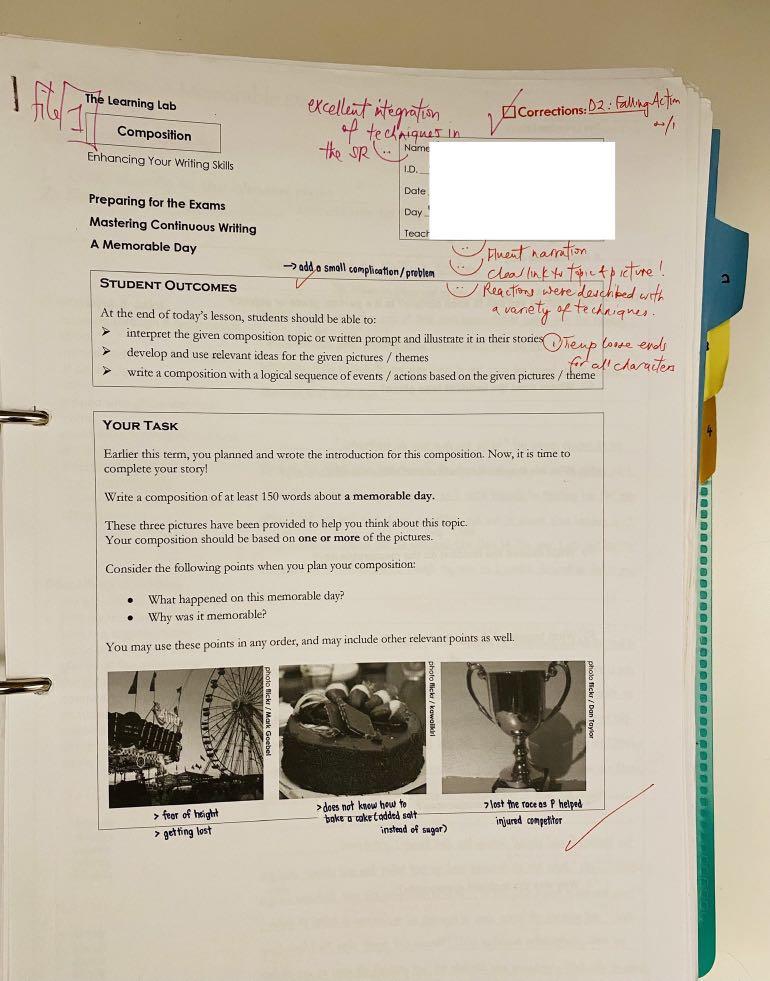 file 1
The Learning Lab
Composition
Enhancing Your Writing Skills
excellent integration
of techniques in
the SR
Corrections: D2: Falling Action
Name
I.D.
Date
Day
Teach
Preparing for the Exams
Mastering Continuous Writing
A Memorable Day
Fluent narration
Clear link to topic & picture!
Reactions were described with
a variety of techniques.
① Tie up loose ends
for all characters
→ add a small complication/problem
STUDENT OUTCOMES
At the end of today's lesson, students should be able to:
➢ interpret the given composition topic or written prompt and illustrate it in their stories
➢ develop and use relevant ideas for the given pictures / themes
➢ write a composition with a logical sequence of events / actions based on the given pictures / theme
YOUR TASK
Earlier this term, you planned and wrote the introduction for this composition. Now, it is time to
complete your story!
Write a composition of at least 150 words about a memorable day.
These three pictures have been provided to help you think about this topic.
Your composition should be based on one or more of the pictures.
Consider the following points when you plan your composition:
• What happened on this memorable day?
• Why was it memorable?
You may use these points in any order, and may include other relevant points as well.
photo flickr / Mark Goebel
photo flickr / kawaiikiri
photo flickr / Dan Taylor
> fear of height
> getting lost
> does not know how to
bake a cake (added salt
instead of sugar)
> lost the race as P helped
injured competitor
4